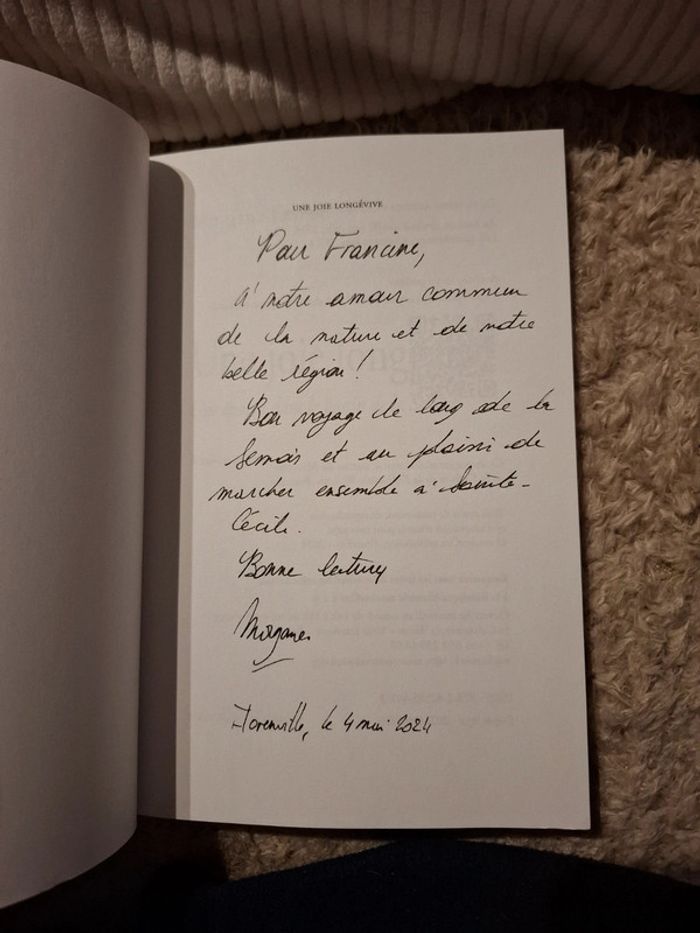 UNE JOIE LONGÉVIVE
Pour Francine,
à notre amour commun
de la nature et de notre
belle région !
Bon voyage le long de la
Semois et au plaisir de
marcher ensemble à Sainte-
Cécile.
Bonne lecture,
Morgane
le 4 mai 2024